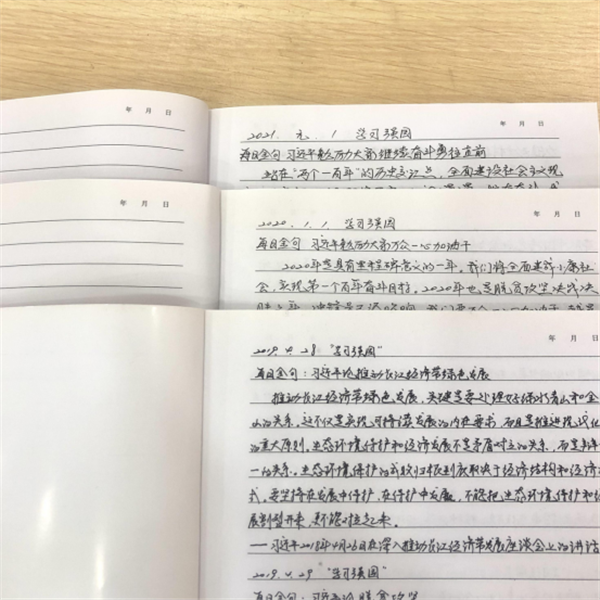 年 月 日
年 月 日
2021. 元. 1 学习强国
每日金句 习近平勉励大家继续奋斗勇往直前
站在“两个一百年”的历史交汇点，全面建设社会主义现
年 月 日
年 月 日
2020. 1. 1. 学习强国
每日金句 习近平勉励大家万众一心加油干
2020年是具有里程碑意义的一年。我们将全面建成小康社
会，实现第一个百年奋斗目标。2020年也是脱贫攻坚决战决
胜之年。冲锋号已经吹响。我们要万众一心加油干
年 月 日
2019. 4. 28 “学习强国”
每日金句：习近平论推动长江经济带绿色发展
推动长江经济带绿色发展，关键是要处理好绿水青山和金
山的关系。这不仅是实现可持续发展的内在要求，而且是推进现代化
的重大原则。生态环境保护和经济发展不是矛盾对立的关系，而是辩
一的关系。生态环境保护的成败归根到底取决于经济结构和经济
式。要坚持在发展中保护、在保护中发展，不能把生态环境保护和经
展割裂开来，更不能对立起来。
——习近平2018年4月26日在深入推动长江经济带发展座谈会上的讲话
2019. 4. 29 “学习强国”
每日金句：习近平论脱贫攻坚